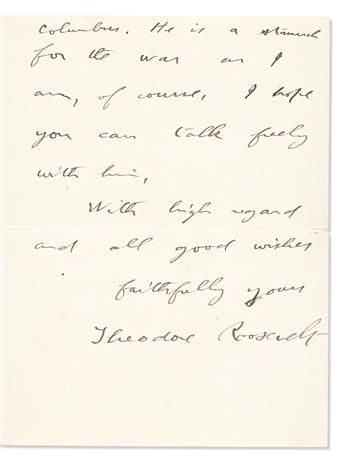 Columbus. He is a staunch
for the war as I
am, of course. I hope
you can talk freely
with him.
With high regard
and all good wishes
faithfully yours
Theodore Roosevelt